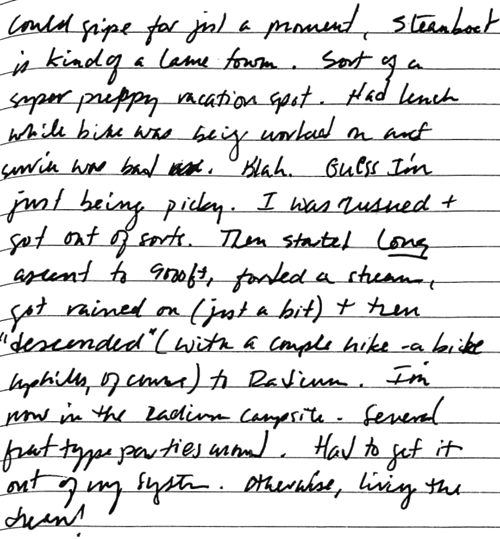 Could gripe for just a moment, Steamboat
is kind of a lame town. Sort of a
super preppy vacation spot. Had lunch
while bike was being worked on and
service was bad. Blah. Guess I'm
just being picky. I was rushed +
got out of sorts. Then started Long
ascent to 9000ft, forded a stream,
got rained on (just a bit) + then
"descended" (with a couple hike-a-bike
uphills, of course) to Radium. I'm
now in the Radium campsite. Several
frat type parties around. Had to get it
out of my system. Otherwise, living the
dream!